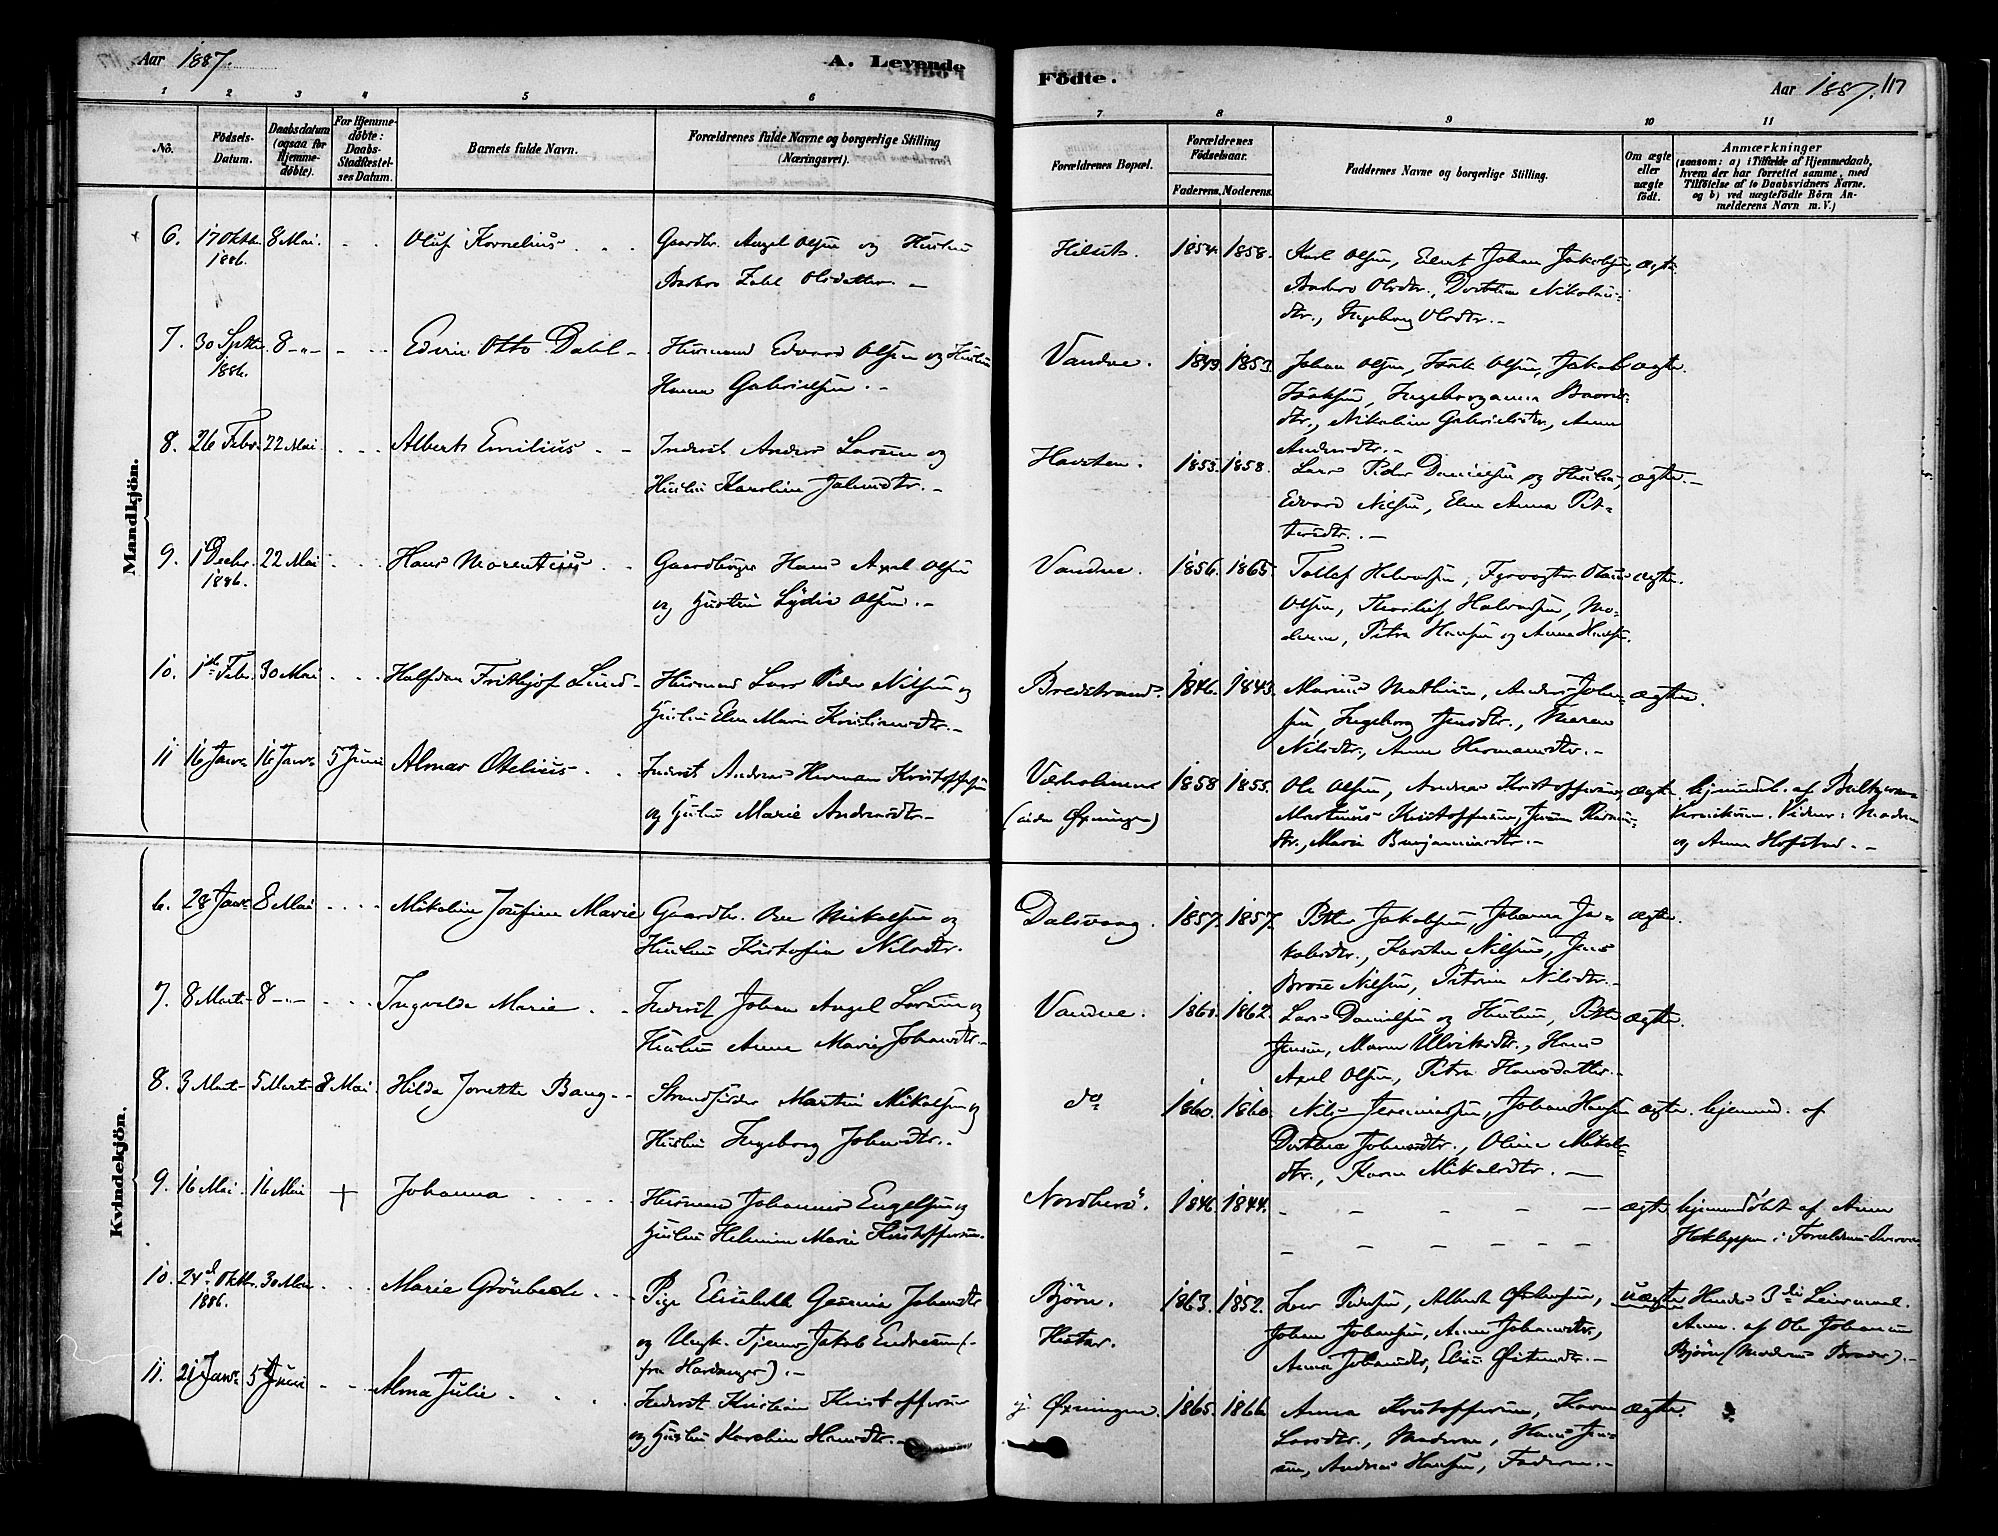 Aar 1887.
A. Levende
Födte.
Aar 1887. 117
1 2 3 4 5 6 7 8 9 10 11
No.
Födsels-Datum.
Daabsdatum (ogsaa for Hjemmedöbte).
For Hjemmedöbte: Daabs-Stadfæstelses Datum.
Barnets fulde Navn.
Forældrenes fulde Navne og borgerlige Stilling (Næringsvei).
Forældrenes Bopæl.
Forældrenes Födselsaar.
Faderens. Moderens.
Faddernes Navne og borgerlige Stilling.
Om ægte eller uægte födt.
Anmærkninger
(saasom: a) i Tilfælde af Hjemmedaab,
hvem der har forrettet samme, med
Tilföielse af to Daabsvidners Navne.
og b) ved uægtefödte Börn Anmelderens Navn m. V.)
Mandkjön.
6. 17 Oktbr. 1886. 8 Mai. Oluf Kornelius Gaardbr. Angel Olsen og Hustru
Barbro Zahl Olsdatter. 1854. 1858. Karl Olsen, Eilert Johan Jakobsen, ægte.
Barbro Olsdtr., Dorthea Nikolai-
dtr., Ingeborg Olsdtr.
7. 30 Septbr. 1886. 8 Edvin Otto Dahl Husmand Edvard Olsen og Hustru
Hanna Gabrielsen. Vandve. 1849. 1853. Johan Olsen, Isak Olsen, Jakob ægte.
Isaksen, Ingeborganna
dtr., Nikoline Gabrielsdtr., Anna
Andersdtr.
8. 26 Febr. 22 Mai Albert Emilius Inderst Anders Larsen og
Hustru Karoline Johansdtr. Havsten. 1853. 1858. Lars Peder Danielsen og Hustru, ægte.
Edvard Nilsen, Elen Anna Pet-
tersdtr.
9. 1 Decbr. 1886. 22 Mai Hans Morentius Gaardbruger Hans Axel Olsen
og Hustru Lydia Olsen. Vandve. 1856. 1865. Tollef Halvorsen, Fyrvogter Olaus ægte.
Olsen, Thorleif Halvorsen, Mo-
deren, Petra Hansen og Anna Hansen.
10. 1ste Febr. 30 Mai Halfdan Frithjof Lund Husmand Lars Peder Nilsen og
Hustru Elen Maria Kristiansdtr. Bredstrand. 1846. 1843. Marius Mathisen, Anders Johan- ægte.
sen, Ingeborg Jensdtr., Maren
Nilsdtr., Anna Hermansdtr.
11 16 Janr. 16 Janr. 5 Juni Almar Otelius Inderst Andreas Herman Kristoffersen
og Hustru Marie Andersdtr. 1858 1855. Ole Olsen, Andreas Kristoffersen, ægte. hjemmed. af
(siden Øxningen) Martinus Kristoffersen, Vidner: Moderen
dtr., Marie Benjaminsdtr. og Anna Hofstad.
Kvindekjön.
6. 28 Janr. 8 Mai Nikoline Josefine Marie Gaardbr. Ole Mikalsen og
Hustru Kristofia Nilsdtr. Dalsvaag. 1857. 1857. Petter Jakobsen, Johanna Ja- ægte.
kobsdtr., Karsten Nilsen, Jens
Brose Nilsen, Petrine Nilsdtr.
7. 8 Marts 8 Ingvalda Marie Inderst Johan Angel Larsen og
Hustru Anna Marie Johansdtr. Vandve. 1860. 1862. Lars Danielsen og Hustru, Petter ægte.
Jensen, Maren Ulriksdtr., Hans
Axel Olsen, Petra Hansdatter.
8. 3 Marts 5 Marts 8 Mai Hilda Jorette Bang Strandsidder Martin Mikalsen og
Hustru Ingeborg Johansdtr. do 1860. 1860. Nils Jeremiassen, Johan Hansen ægte. hjemmed. af
Dorthea Johansdtr., Oline Mikals-
dtr., Karen Mikalsdtr.
9. 16 Mai. 16 Mai + Johanna Husmand Johannes Engelsen og
Hustru Helmine Marie Kristoffersen. Nordherö. 1846. 1844. ægte hjemmedöbt af Anna
i Forældrenes Nærvær
10. 24de Oktbr. 1886. 30 Mai Marie Grönbech Pige Elisabeth Johansdtr.
og Ungk. Tjener Jakob Endresen (
fra Hardanger). Björn. 1863. 1852. Iver Pedersen, Albert uægte Hendes 3die Leiermaal.
Johan Johansen, Anna Johansdtr., Anm. af Ole Johansen
Anna Johansdtr., Elise Björn (Moderens Broder).
11. 21 Janr. 5 Juni Alma Julie Inderst. Kristian Kristoffersen
og Hustru Karoline Hansdtr. Øxningen. 1865. 1866. Anna Kristoffersen, Karen ægte.
Larsdtr., Moderen, Hans Jen-
sen, Andreas Hansen, Faderen.